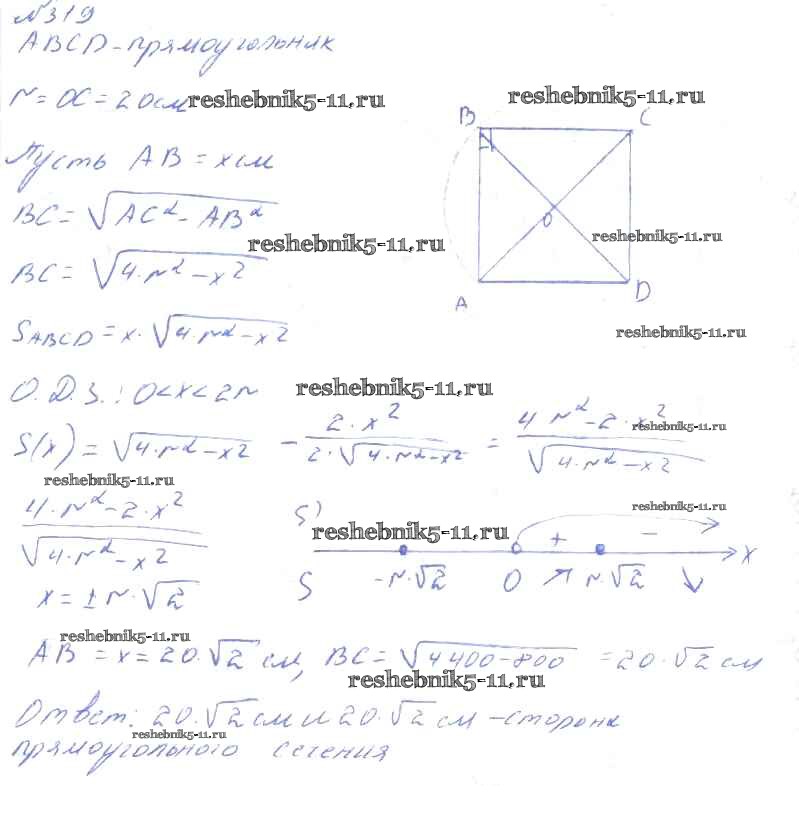 №319
ABCD - прямоугольник
r = OC = 20 см reshebnik5-11.ru
reshebnik5-11.ru
B C
Пусть AB = x см
BC = √(AC² - AB²)
reshebnik5-11.ru
O
reshebnik5-11.ru
BC = √(4·r² - x²)
A D
S ABCD = x·√(4·r² - x²)
reshebnik5-11.ru
О.D.З.: 0 < x < 2r reshebnik5-11.ru
S(x) = √(4·r² - x²) - 2·x² / 2·√(4·r² - x²) = 4r² - 2·x² / √(4·r² - x²)
reshebnik5-11.ru
reshebnik5-11.ru
4·r² - 2·x² / √(4·r² - x²)
reshebnik5-11.ru
S' reshebnik5-11.ru + -
S -r·√2 0 ↗ r·√2 ↘ x
x = ± r·√2
reshebnik5-11.ru
AB = x = 20·√2 см, BC = √(4400-800) = 20·√2 см
reshebnik5-11.ru
Ответ: 20·√2 см и 20·√2 см - сторона
reshebnik5-11.ru
прямоугольного сечения